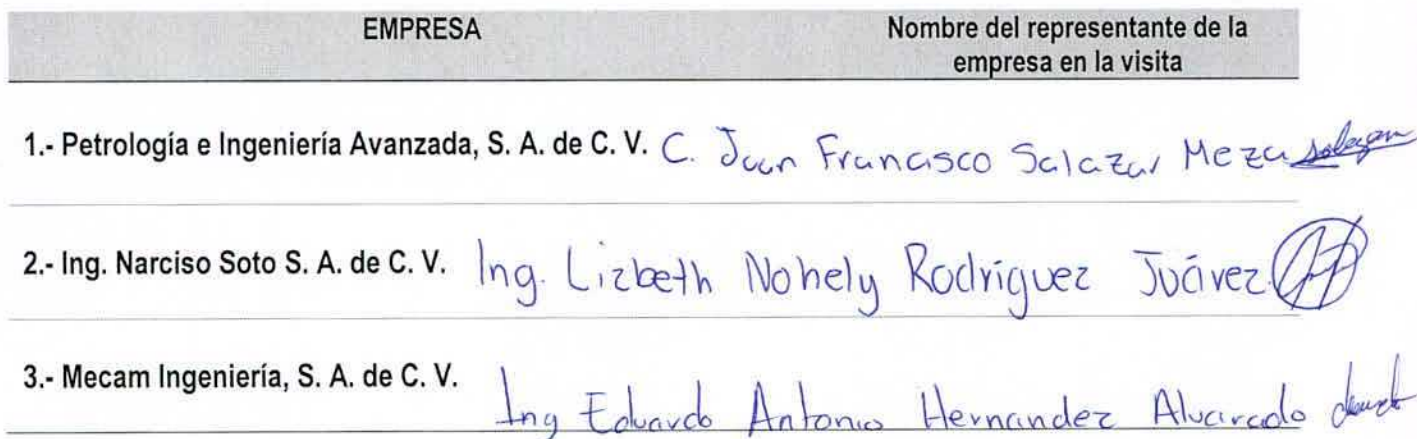 EMPRESA
Nombre del representante de la
empresa en la visita
1.- Petrología e Ingeniería Avanzada, S. A. de C. V. C. Juan Francisco Salazar Meza
2.- Ing. Narciso Soto S. A. de C. V. Ing. Lizbeth Nohely Rodríguez Juárez
3.- Mecam Ingeniería, S. A. de C. V. Ing Eduardo Antonio Hernandez Alvarado